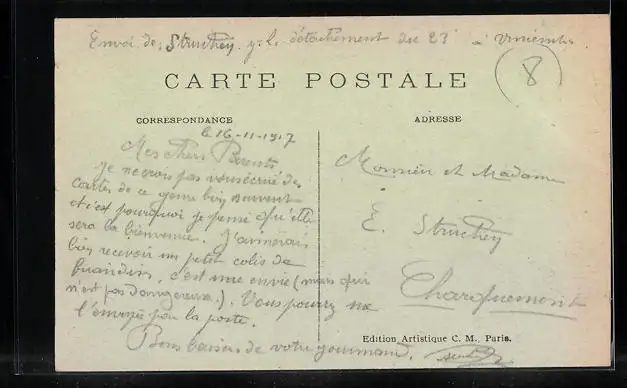 Envoi de Struchey 
détachement du 23
8
CARTE POSTALE
CORRESPONDANCE
ADRESSE
le 16-11-1917
Mes chers Parents
Je ne crois pas vous écrire des
cartes de ce genre bien souvent
et c'est pourquoi je pense qu'elle
sera la bienvenue. J'aimerais
bien recevoir un petit colis de
friandises, c'est une envie (mais qui
n'est pas dangereuse). Vous pourrez me
l'envoyer par la poste.
Bons baisers de votre gourmand.
Monsieur et Madame
E. Struchey
Charquemont
Edition Artistique C. M., Paris.